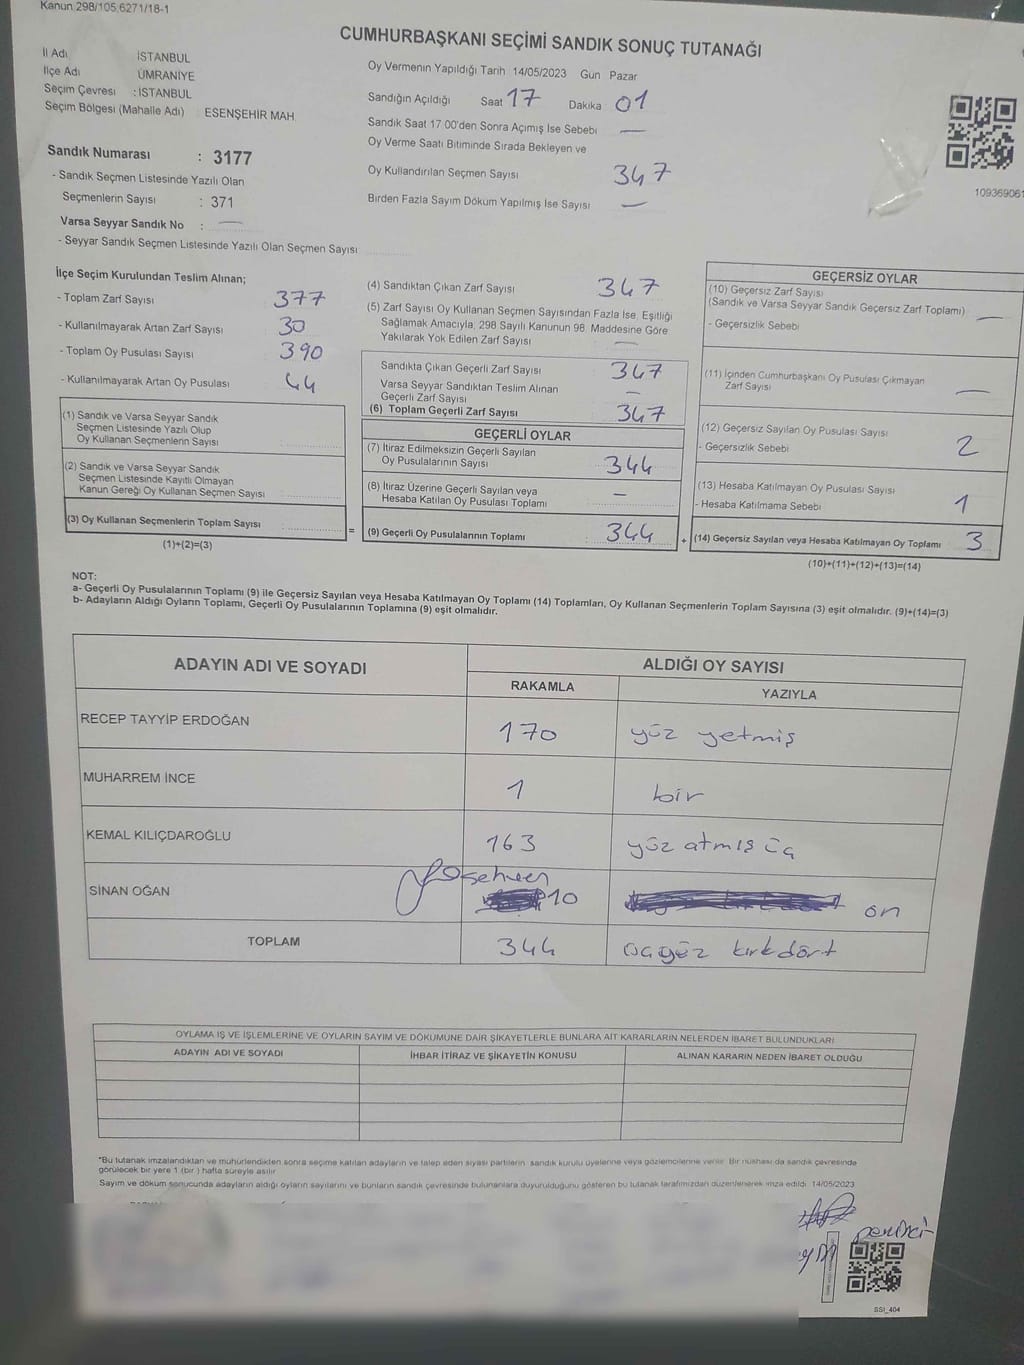 Kanun 298/105,6271/18-1
CUMHURBAŞKANI SEÇİMİ SANDIK SONUÇ TUTANAĞI
İl Adı İSTANBUL
İlçe Adı ÜMRANİYE
Seçim Çevresi : İSTANBUL
Seçim Bölgesi (Mahalle Adı) : ESENŞEHİR MAH
Sandık Numarası : 3177
- Sandık Seçmen Listesinde Yazılı Olan
Seçmenlerin Sayısı : 371
Varsa Seyyar Sandık No : —
- Seyyar Sandık Seçmen Listesinde Yazılı Olan Seçmen Sayısı
Oy Vermenin Yapıldığı Tarih 14/05/2023 Gün Pazar
Sandığın Açıldığı Saat 17 Dakika 01
Sandık Saat 17 00'den Sonra Açımış İse Sebebi —
Oy Verme Saati Bitiminde Sırada Bekleyen ve
Oy Kullandırılan Seçmen Sayısı 347
Birden Fazla Sayım Döküm Yapılmış İse Sayısı —
109369061
İlçe Seçim Kurulundan Teslim Alınan;
- Toplam Zarf Sayısı 377
- Kullanılmayarak Artan Zarf Sayısı 30
- Toplam Oy Pusulası Sayısı 390
- Kullanılmayarak Artan Oy Pusulası 44
(1) Sandık ve Varsa Seyyar Sandık
Seçmen Listesinde Yazılı Olup
Oy Kullanan Seçmenlerin Sayısı
(2) Sandık ve Varsa Seyyar Sandık
Seçmen Listesinde Kayıtlı Olmayan
Kanun Gereği Oy Kullanan Seçmen Sayısı
(3) Oy Kullanan Seçmenlerin Toplam Sayısı =
(1)+(2)=(3)
(4) Sandıktan Çıkan Zarf Sayısı 347
(5) Zarf Sayısı Oy Kullanan Seçmen Sayısından Fazla İse, Eşitliği
Sağlamak Amacıyla, 298 Sayılı Kanunun 98. Maddesine Göre
Yakılarak Yok Edilen Zarf Sayısı —
Sandıkta Çıkan Geçerli Zarf Sayısı 347
Varsa Seyyar Sandıktan Teslim Alınan
Geçerli Zarf Sayısı —
(6) Toplam Geçerli Zarf Sayısı 347
GEÇERLİ OYLAR
(7) İtiraz Edilmeksizin Geçerli Sayılan
Oy Pusulalarının Sayısı 344
(8) İtiraz Üzerine Geçerli Sayılan veya
Hesaba Katılan Oy Pusulası Toplamı —
(9) Geçerli Oy Pusulalarının Toplamı 344 +
GEÇERSİZ OYLAR
(10) Geçersiz Zarf Sayısı
(Sandık ve Varsa Seyyar Sandık Geçersiz Zarf Toplamı) —
- Geçersizlik Sebebi
(11) İçinden Cumhurbaşkanı Oy Pusulası Çıkmayan
Zarf Sayısı —
(12) Geçersiz Sayılan Oy Pusulası Sayısı 2
- Geçersizlik Sebebi
(13) Hesaba Katılmayan Oy Pusulası Sayısı
- Hesaba Katılmama Sebebi 1
(14) Geçersiz Sayılan veya Hesaba Katılmayan Oy Toplamı 3
(10)+(11)+(12)+(13)=(14)
NOT:
a- Geçerli Oy Pusulalarının Toplamı (9) ile Geçersiz Sayılan veya Hesaba Katılmayan Oy Toplamı (14) Toplamları, Oy Kullanan Seçmenlerin Toplam Sayısına (3) eşit olmalıdır. (9)+(14)=(3)
b- Adayların Aldığı Oyların Toplamı, Geçerli Oy Pusulalarının Toplamına (9) eşit olmalıdır.
ADAYIN ADI VE SOYADI ALDIĞI OY SAYISI
RAKAMLA YAZIYLA
RECEP TAYYİP ERDOĞAN 170 yüz yetmiş
MUHARREM İNCE 1 bir
KEMAL KILIÇDAROĞLU 163 yüz atmış üç
sehven
SİNAN OĞAN 10 on
TOPLAM 344 üçyüz kırkdört
OYLAMA İŞ VE İŞLEMLERİNE VE OYLARIN SAYIM VE DÖKÜMÜNE DAİR ŞİKAYETLERLE BUNLARA AİT KARARLARIN NELERDEN İBARET BULUNDUKLARI
ADAYIN ADI VE SOYADI İHBAR İTİRAZ VE ŞİKAYETİN KONUSU ALINAN KARARIN NEDEN İBARET OLDUĞU
*Bu tutanak imzalandıktan ve mühürlendikten sonra seçime katılan adayların ve talep eden siyasi partilerin sandık kurulu üyelerine veya gözlemcilerine verilir. Bir nüshası da sandık çevresinde
görülecek bir yere 1 (bir ) hafta süreyle asılır
Sayım ve döküm sonucunda adayların aldığı oyların sayılarını ve bunların sandık çevresinde bulunanlara duyurulduğunu gösteren bu tutanak tarafımızdan düzenlenerek imza edildi. 14/05/2023
SSI_404